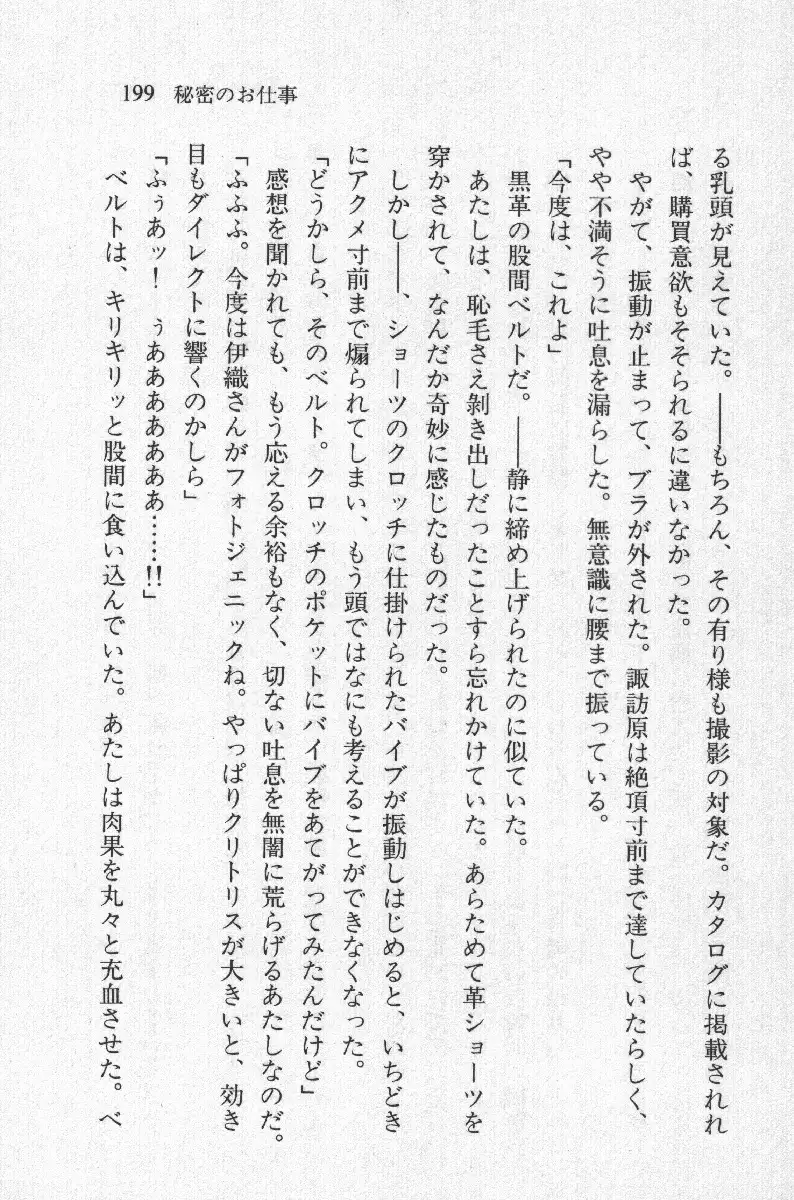 199 秘密のお仕事
る乳頭が見えていた。――もちろん、その有り様も撮影の対象だ。カタログに掲載されれ
ば、購買意欲もそそられるに違いなかった。
やがて、振動が止まって、ブラが外された。諏訪原は絶頂寸前まで達していたらしく、
やや不満そうに吐息を漏らした。無意識に腰まで振っている。
「今度は、これよ」
黒革の股間ベルトだ。――静に締め上げられたのに似ていた。
あたしは、恥毛さえ剝き出しだったことすら忘れかけていた。あらためて革ショーツを
穿かされて、なんだか奇妙に感じたものだった。
しかし――、ショーツのクロッチに仕掛けられたバイブが振動しはじめると、いちどき
にアクメ寸前まで煽られてしまい、もう頭ではなにも考えることができなくなった。
「どうかしら、そのベルト。クロッチのポケットにバイブをあてがってみたんだけど」
感想を聞かれても、もう応える余裕もなく、切ない吐息を無闇に荒らげるあたしなのだ。
「ふふふ。今度は伊織さんがフォトジェニックね。やっぱりクリトリスが大きいと、効き
目もダイレクトに響くのかしら」
「ふぅあッ！　ぅあああああああ……!!」
ベルトは、キリキリッと股間に食い込んでいた。あたしは肉果を丸々と充血させた。ベ